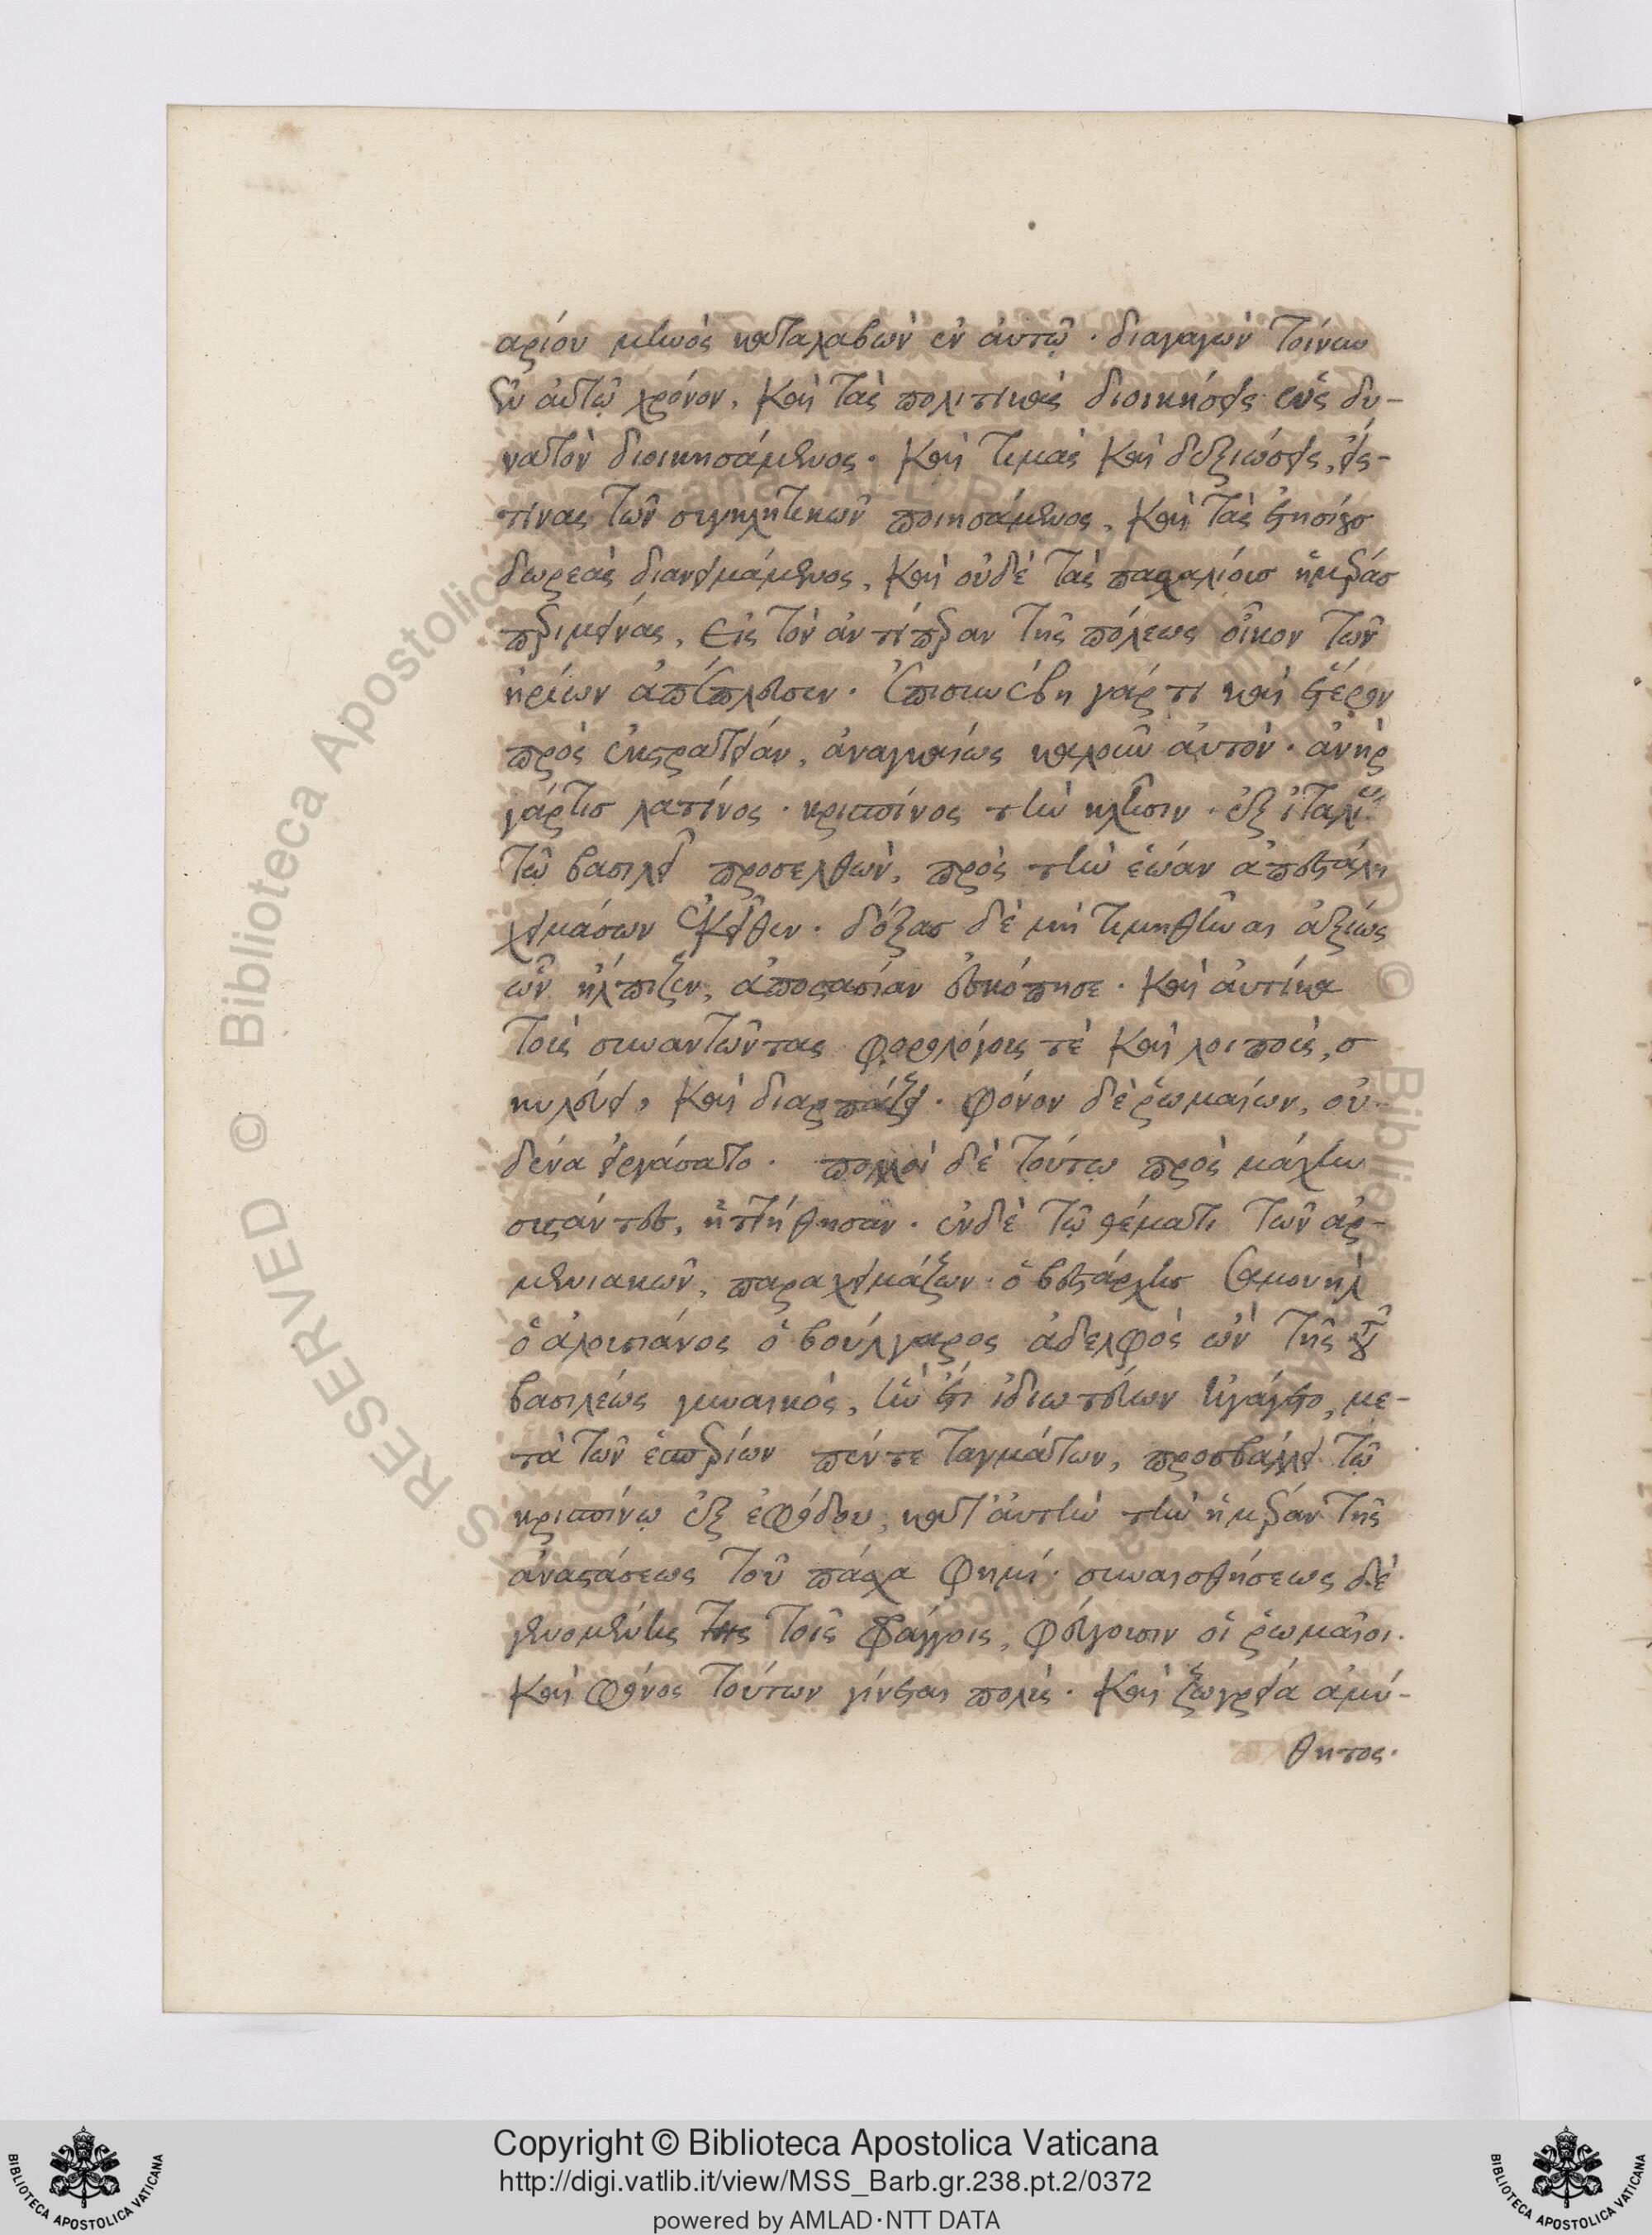 αρίου μηνὸς καταλαβὼν ἐν αὐτῷ· διαγαγὼν τοίνυν
ἐν αὐτῷ χρόνον, καὶ τὰς πολιτικὰς διοικήσεις ὡς δυ-
νατὸν διοικησάμενος· καὶ τιμὰς καὶ δεξιώσεις, εἴς-
τινας τῶν συγκλητικῶν ποιησάμενος, καὶ τὰς ἐτησίους
δωρεὰς διανειμάμενος, καὶ οὐδὲ τὰς πασχαλίους ἡμέρας
περιμείνας, εἰς τὸν ἀντίπεραν τῆς πόλεως οἶκον τῶν
ἡρίων ἀπέπλευσεν· ἐπισυνέβη γάρ τι καὶ ἕτερον
πρὸς ἐκστρατείαν, ἀναγκαίως καλοῦν αὐτόν· ἀνὴρ
γάρ τις λατίνος· κρισπίνος τὴν κλῆσιν· ἐξ ἰταλίας
τῷ βασιλεῖ προσελθὼν, πρὸς τὴν ἑώαν ἀπεστάλη
χειμάσων ἐκεῖθεν· δόξας δὲ μὴ τιμηθῆναι ἀξίως
ὧν ἤλπιζεν, ἀποστασίαν ἐσκόπησε· καὶ αὐτίκα
τοὺς συναντῶντας φορολόγους τὲ καὶ λοιποὺς, σ
κυλεύει, καὶ διαρπάζει· φόνον δὲ ῥωμαίων, οὐ-
δένα εἰργάσατο· πολλοὶ δὲ τούτῳ πρὸς μάχην
συστάντες, ἡττήθησαν· ἐν δὲ τῷ θέματι τῶν ἀρ-
μενιακῶν, παραχειμάζων ὁ βεστάρχης σαμουὴλ
ὁ ἀλουσιάνος ὁ βούλγαρος ἀδελφὸς ὢν τῆς τοῦ
βασιλέως γυναικὸς, ἣν ἔτι ἰδιωτεύων ἠγάγετο, με-
τὰ τῶν ἑσπερίων πέντε ταγμάτων, προσβάλλει τῷ
κρισπίνῳ ἐξ ἐφόδου, κατ' αὐτὴν τὴν ἡμέραν τῆς
ἀναστάσεως τοῦ πάσχα φημί· συναισθήσεως δὲ
γενομένης τοῖς φράγγοις, φεύγουσιν οἱ ῥωμαῖοι·
καὶ φόνος τούτων γίνεται πολὺς· καὶ ζωγρεία ἀμύ-
θητος·
Copyright © Biblioteca Apostolica Vaticana
http://digi.vatlib.it/view/MSS_Barb.gr.238.pt.2/0372
powered by AMLAD·NTT DATA